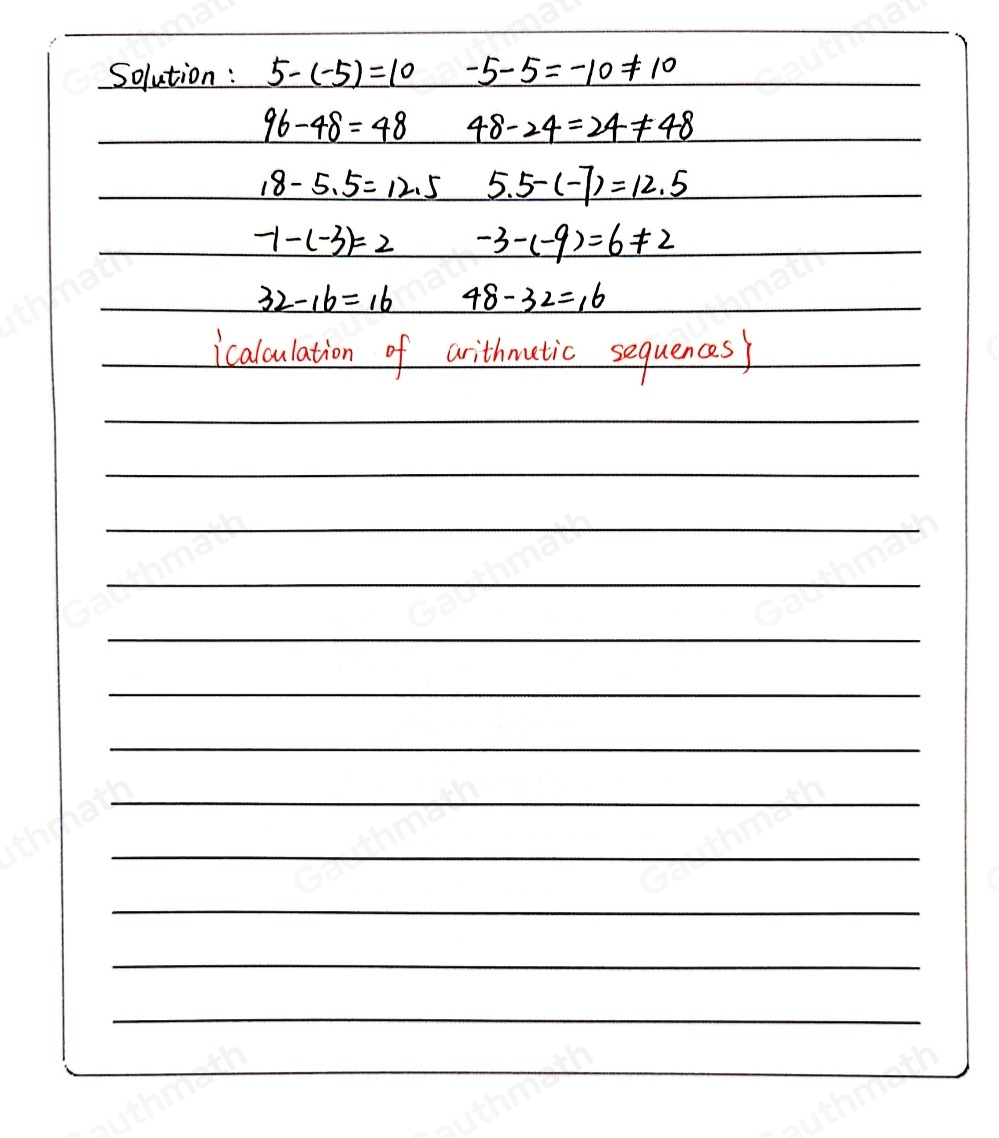 Solution: 5-(-5)=10 -5-5=-10≠10
96-48=48 48-24=24≠48
18-5.5=12.5 5.5-(-7)=12.5
-1-(-3)=2 -3-(-9)=6≠2
32-16=16 48-32=16
{calculation of arithmetic sequences}
Gauthmath